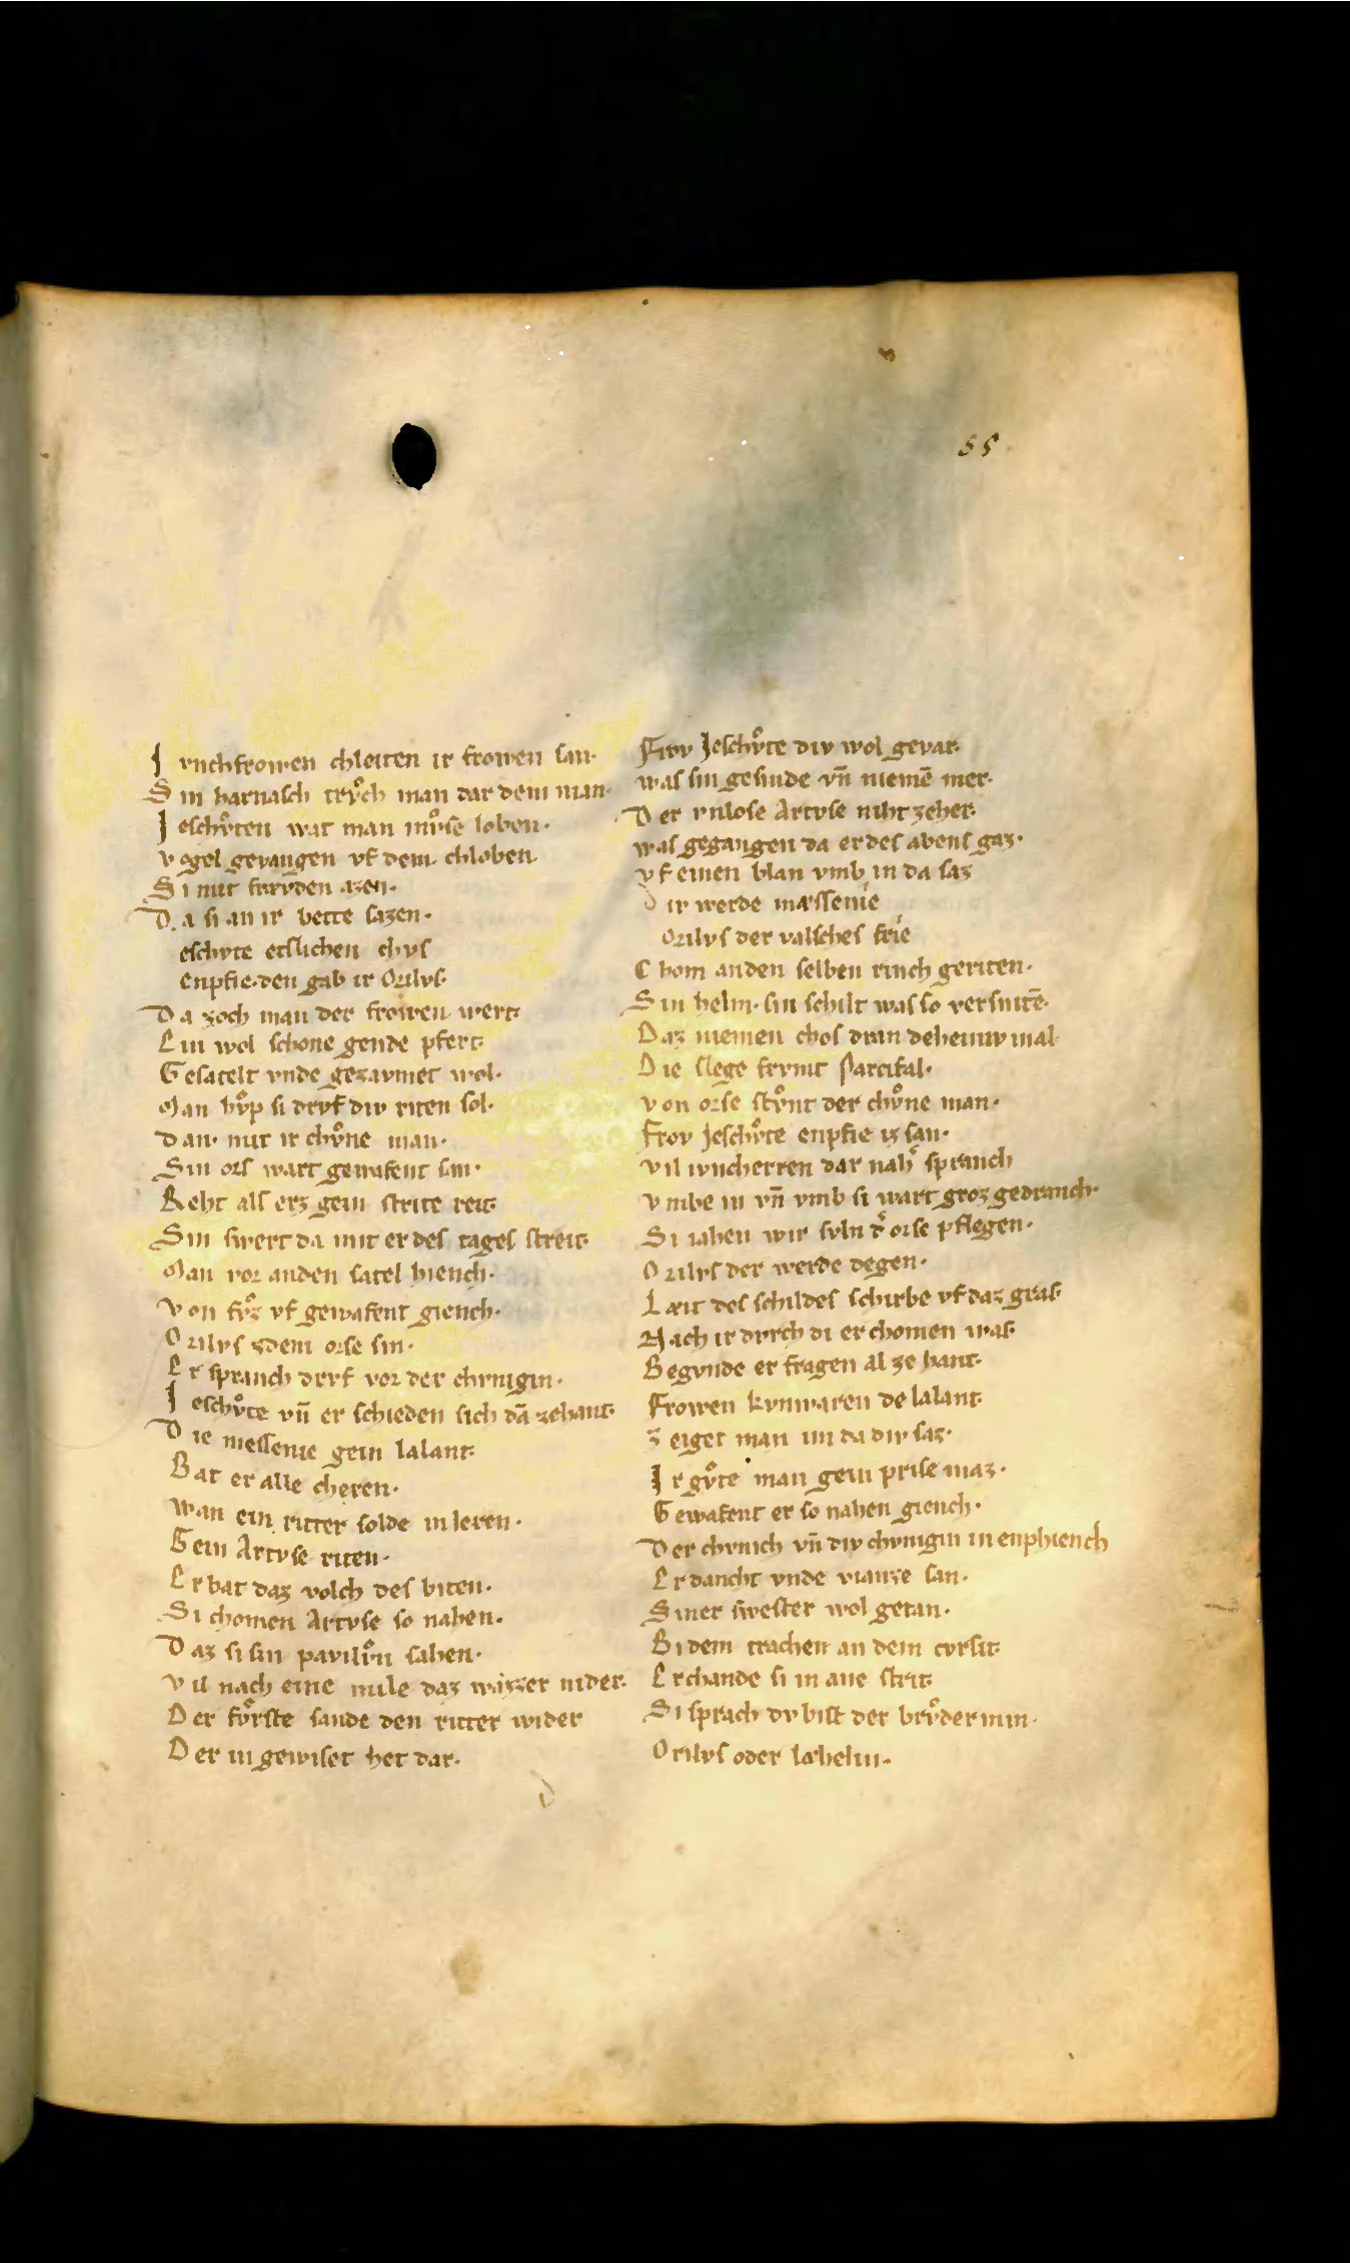 55
J vnchfrowen chleiten ir frowen san·
S in harnasch trvͦch man dar dem man·
J eschvͦten wart man mvͦse loben·
v ogel gevangen vf dem chloben
S i mit frevden azen·
D a si an ir bette sazen·
eschvte etslichen chvs
enpfie·den gab ir Orilvs·
D a zoch man der frowen wert·
E in wol schone gende pfert·
G esatelt vnde gezavmet wol·
M an hvͦp si drvf div riten sol·
d an· mit ir chvͦne man·
S in ors wart gewafent san·
R eht als erz gein strite reit·
S in swert da mit er des tages streit·
M an vor anden satel hiench·
V on fvͦz vf gewafent giench·
O rilvs zdem orse sin·
E r spranch drvf vor der chvnigin·
J eschvͦte vn̄ er schieden sich dā zehant·
D ie messenie gein lalant·
B at er alle cheren·
W an ein ritter solde in leren·
G ein Artvse riten·
E r bat daz volch des biten·
S i chomen Artvse so nahen·
D az si sin pavilvͦn sahen·
V il nach eine mile daz wazzer nider·
D er fvͦrste sande den ritter wider
D er in gewiset het dar·
Frov Jeschvͦte div wol gevar·
was sin gesinde vn̄ niemē mer·
D er vnlose Artvse niht zeher·
was gegangen da er des abents gaz·
v f einen blan vmb in da saz
D iv werde mæssenie
Orilvs der valsches frie
C hom anden selben rinch geriten·
S in helm· sin schilt was so versnitē·
D az niemen chos dran deheiniv mal
D ie slege frvmt parcifal·
v on orse stvͦnt der chvͦne man·
Frov Jeschvͦte enpfie iz san·
v il ivncherren dar nah' spranch
v mbe in vn̄ vmb si wart groz gedranch·
S i iahen wir svln d' orse pflegen·
O rilvs der werde degen·
L æit des schildes schirbe vf daz gras·
N ach ir dvrch di er chomen was·
B egvnde er fragen al ze hant·
Frowen kvnwaren de lalant·
z eiget man im da div saz·
J r gvͦte man gein prise maz·
G ewafent er so nahen giench·
D er chvnich vn̄ div chvnigin in enphiench
E r dancht vnde vianze san·
S iner swester wol getan·
B i dem trachen an dem cvrsit·
E rchande si in ane strit·
S i sprach dv bist der brvͦder min·
O rilvs oder læhelin·